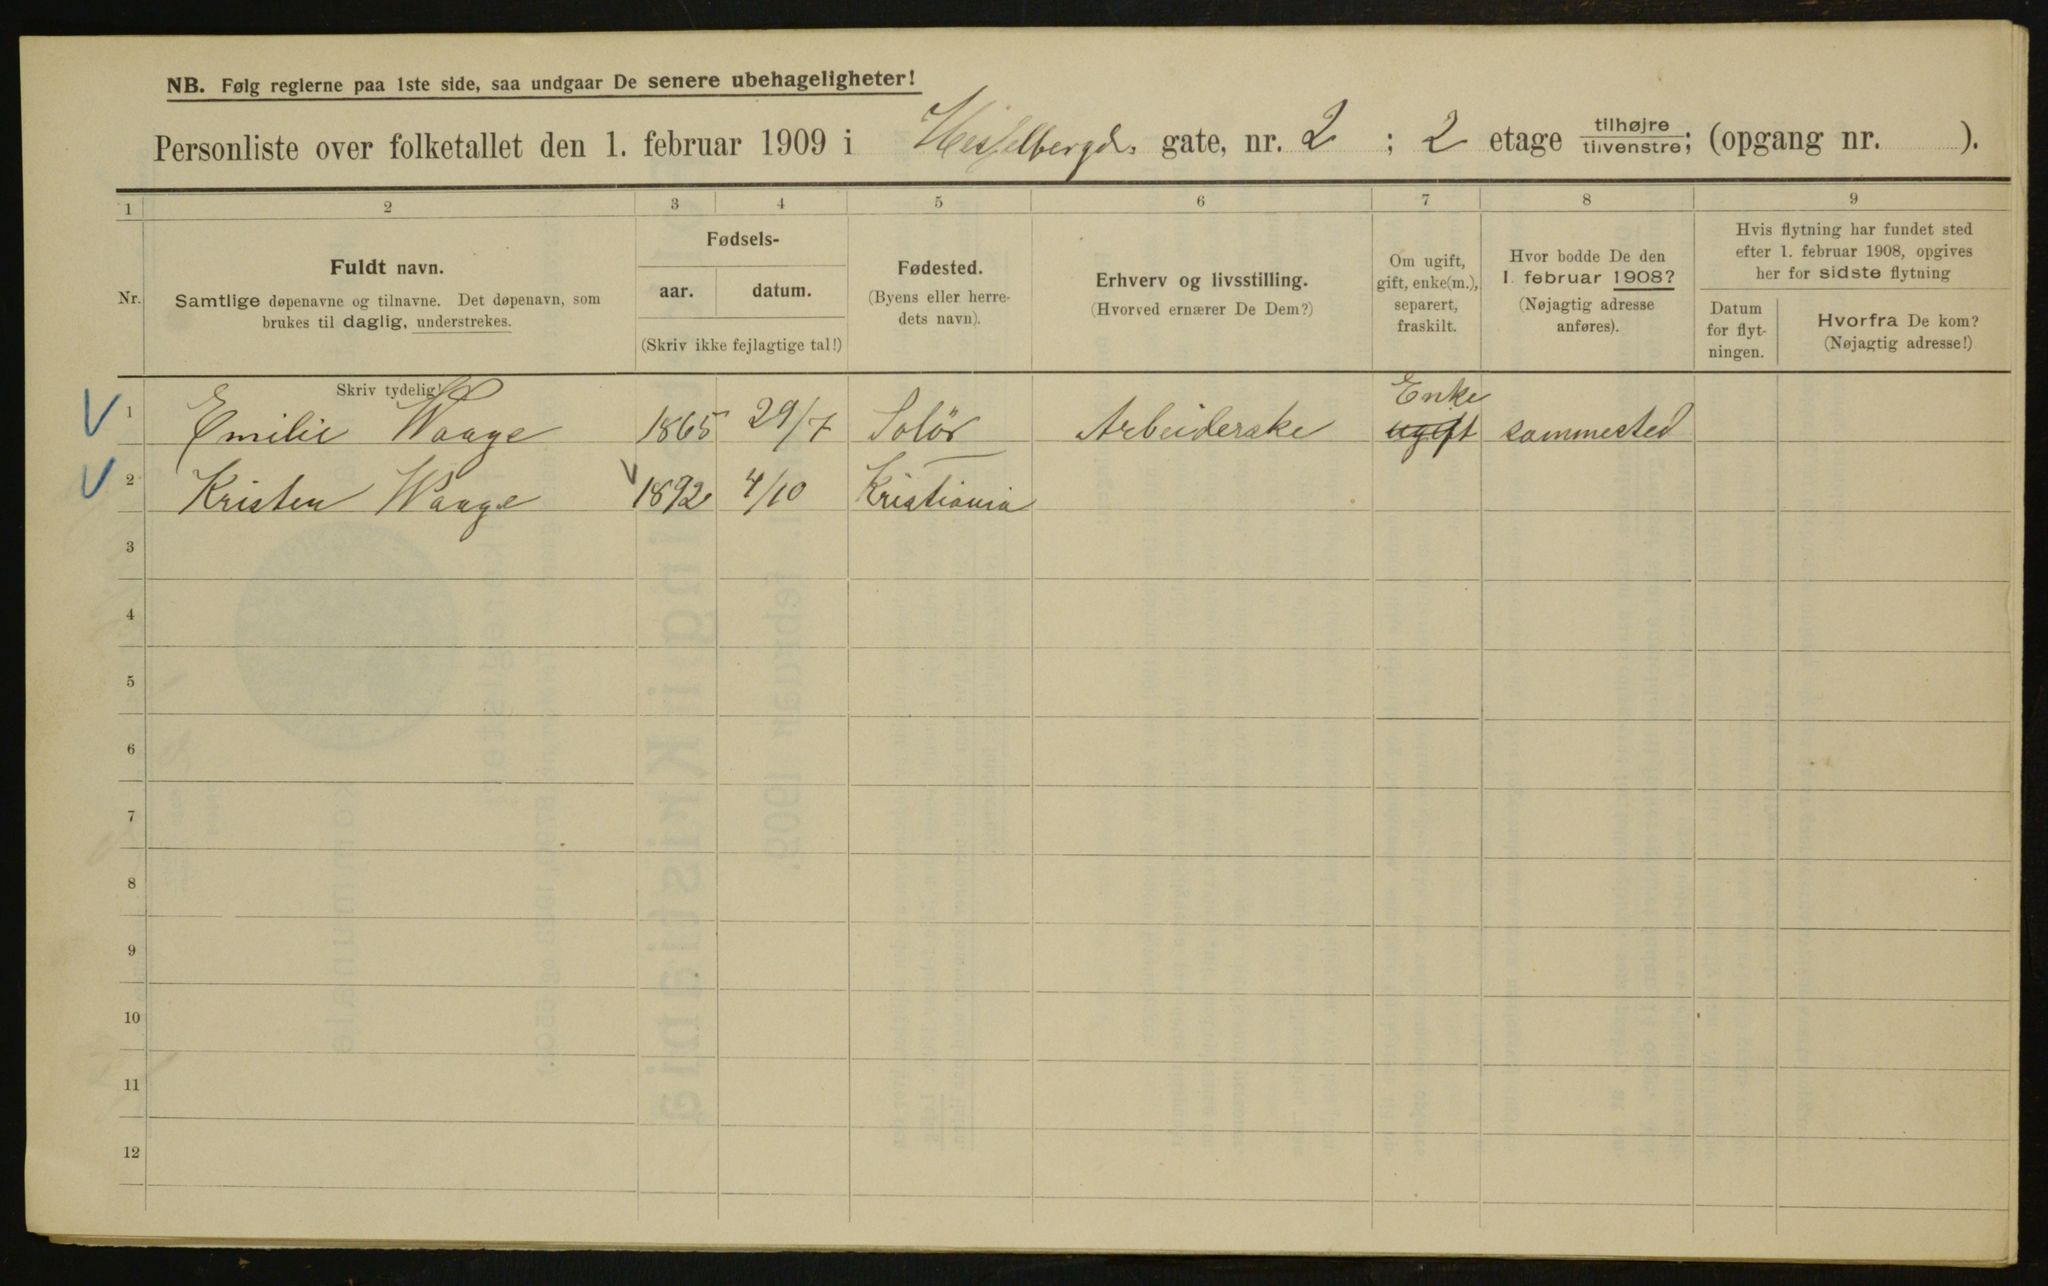 NB. Følg reglerne paa 1ste side, saa undgaar De senere ubehageligheter!
Personliste over folketallet den 1. februar 1909 i Hesselbergds. gate, nr. 2 ; 2 etage tilhøjre tilvenstre; (opgang nr. ).
1 2 3 4 5 6 7 8 9
Nr.
Fuldt navn.
Samtlige døpenavne og tilnavne. Det døpenavn, som
brukes til daglig, understrekes.
Skriv tydelig!
Fødsels-
aar. datum.
(Skriv ikke fejlagtige tal!)
Fødested.
(Byens eller herre-
dets navn).
Erhverv og livsstilling.
(Hvorved ernærer De Dem?)
Om ugift,
gift, enke(m.),
separert,
fraskilt.
Hvor bodde De den
1. februar 1908?
(Nøjagtig adresse
anføres).
Hvis flytning har fundet sted
efter 1. februar 1908, opgives
her for sidste flytning
Datum
for flyt-
ningen.
Hvorfra De kom?
(Nøjagtig adresse!)
Enke
1 Emilie Waage 1865 29/7 Solör Arbeiderske ugift sammested
2 Kristen Waage 1892 4/10 Kristiania
3
4
5
6
7
8
9
10
11
12